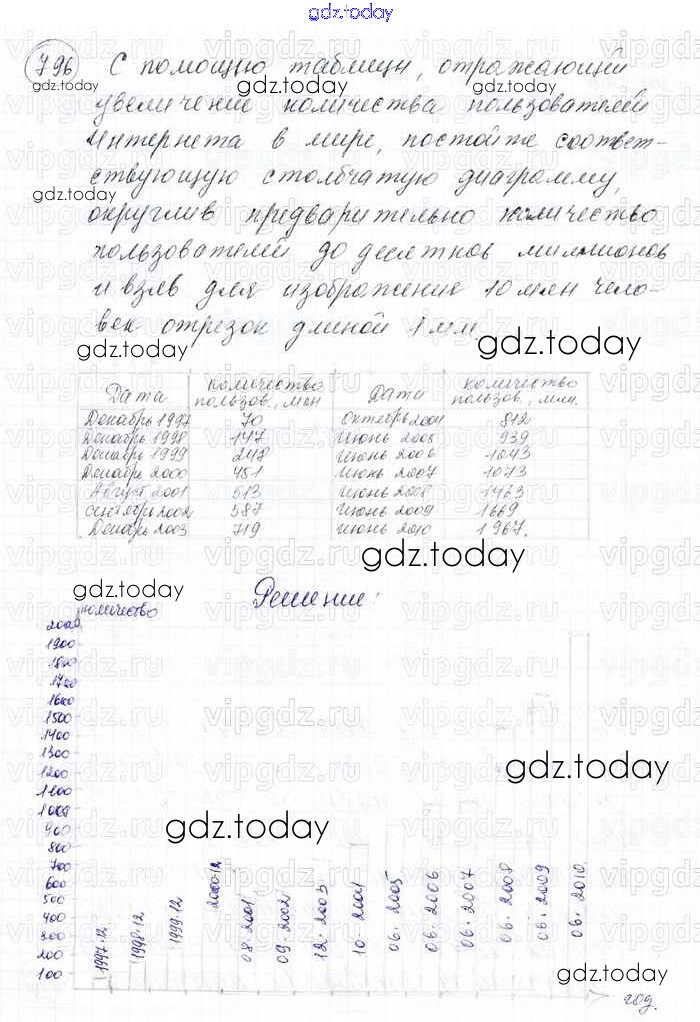 gdz.today
796 С помощью таблицы, отражающей
увеличение количества пользователей
Интернета в мире, постойте соответ-
ствующую столбчатую диаграмму,
округлив предварительно количество
пользователей до десятков миллионов
и взяв для изображения 10 млн чело-
век отрезок длиной 1 мм
gdz.today
gdz.today
gdz.today
gdz.today
Дата количество пользов., млн Дата количество пользов., млн.
Декабрь 1997 70 Октябрь 2004 812
Декабрь 1998 147 Июнь 2005 939
Декабрь 1999 248 Июнь 2006 1043
Декабрь 2000 451 Июнь 2007 1073
Август 2001 513 Июнь 2008 1463
Сентябрь 2002 587 Июнь 2009 1669
Декабрь 2003 719 Июнь 2010 1967.
gdz.today
gdz.today
Решение:
количество
2000
1900
1800
1700
1600
1500
1400
1300
1200
1100
1000
900
800
700
600
500
400
300
200
100
gdz.today
gdz.today
gdz.today
1997-12
1998-12
1999-12
2000-12
08-2001
09.2002
12.2003
10.2004
06.2005
06.2006
06.2007
06.2008
06.2009
06.2010
год.
vipgdz.ru